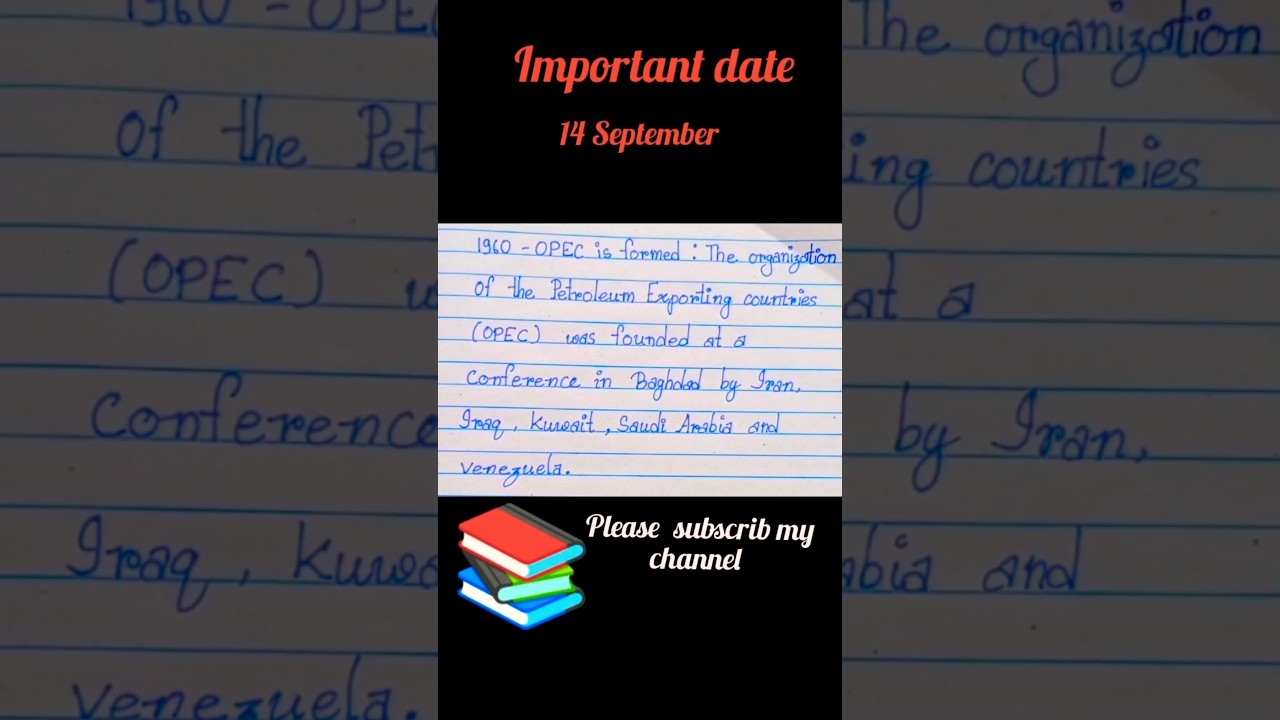 Important date
14 September
1960 - OPEC is formed : The organization
of the Petroleum Exporting countries
(OPEC) was founded at a
Conference in Baghdad by Iran,
Iraq, Kuwait, Saudi Arabia and
venezuela.
Please subscrib my
channel